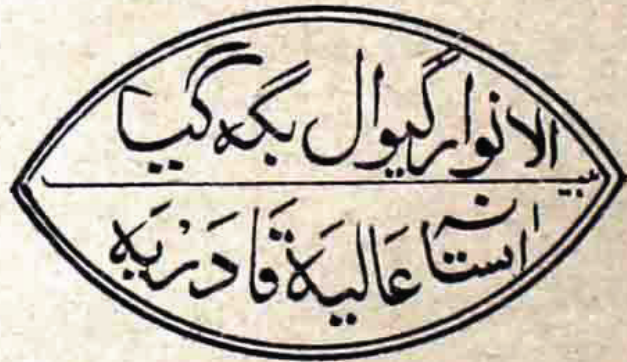 بیت الانوار گیوال بگہ گیا
آستانہ عَالیَہ قَادَرْیَہ